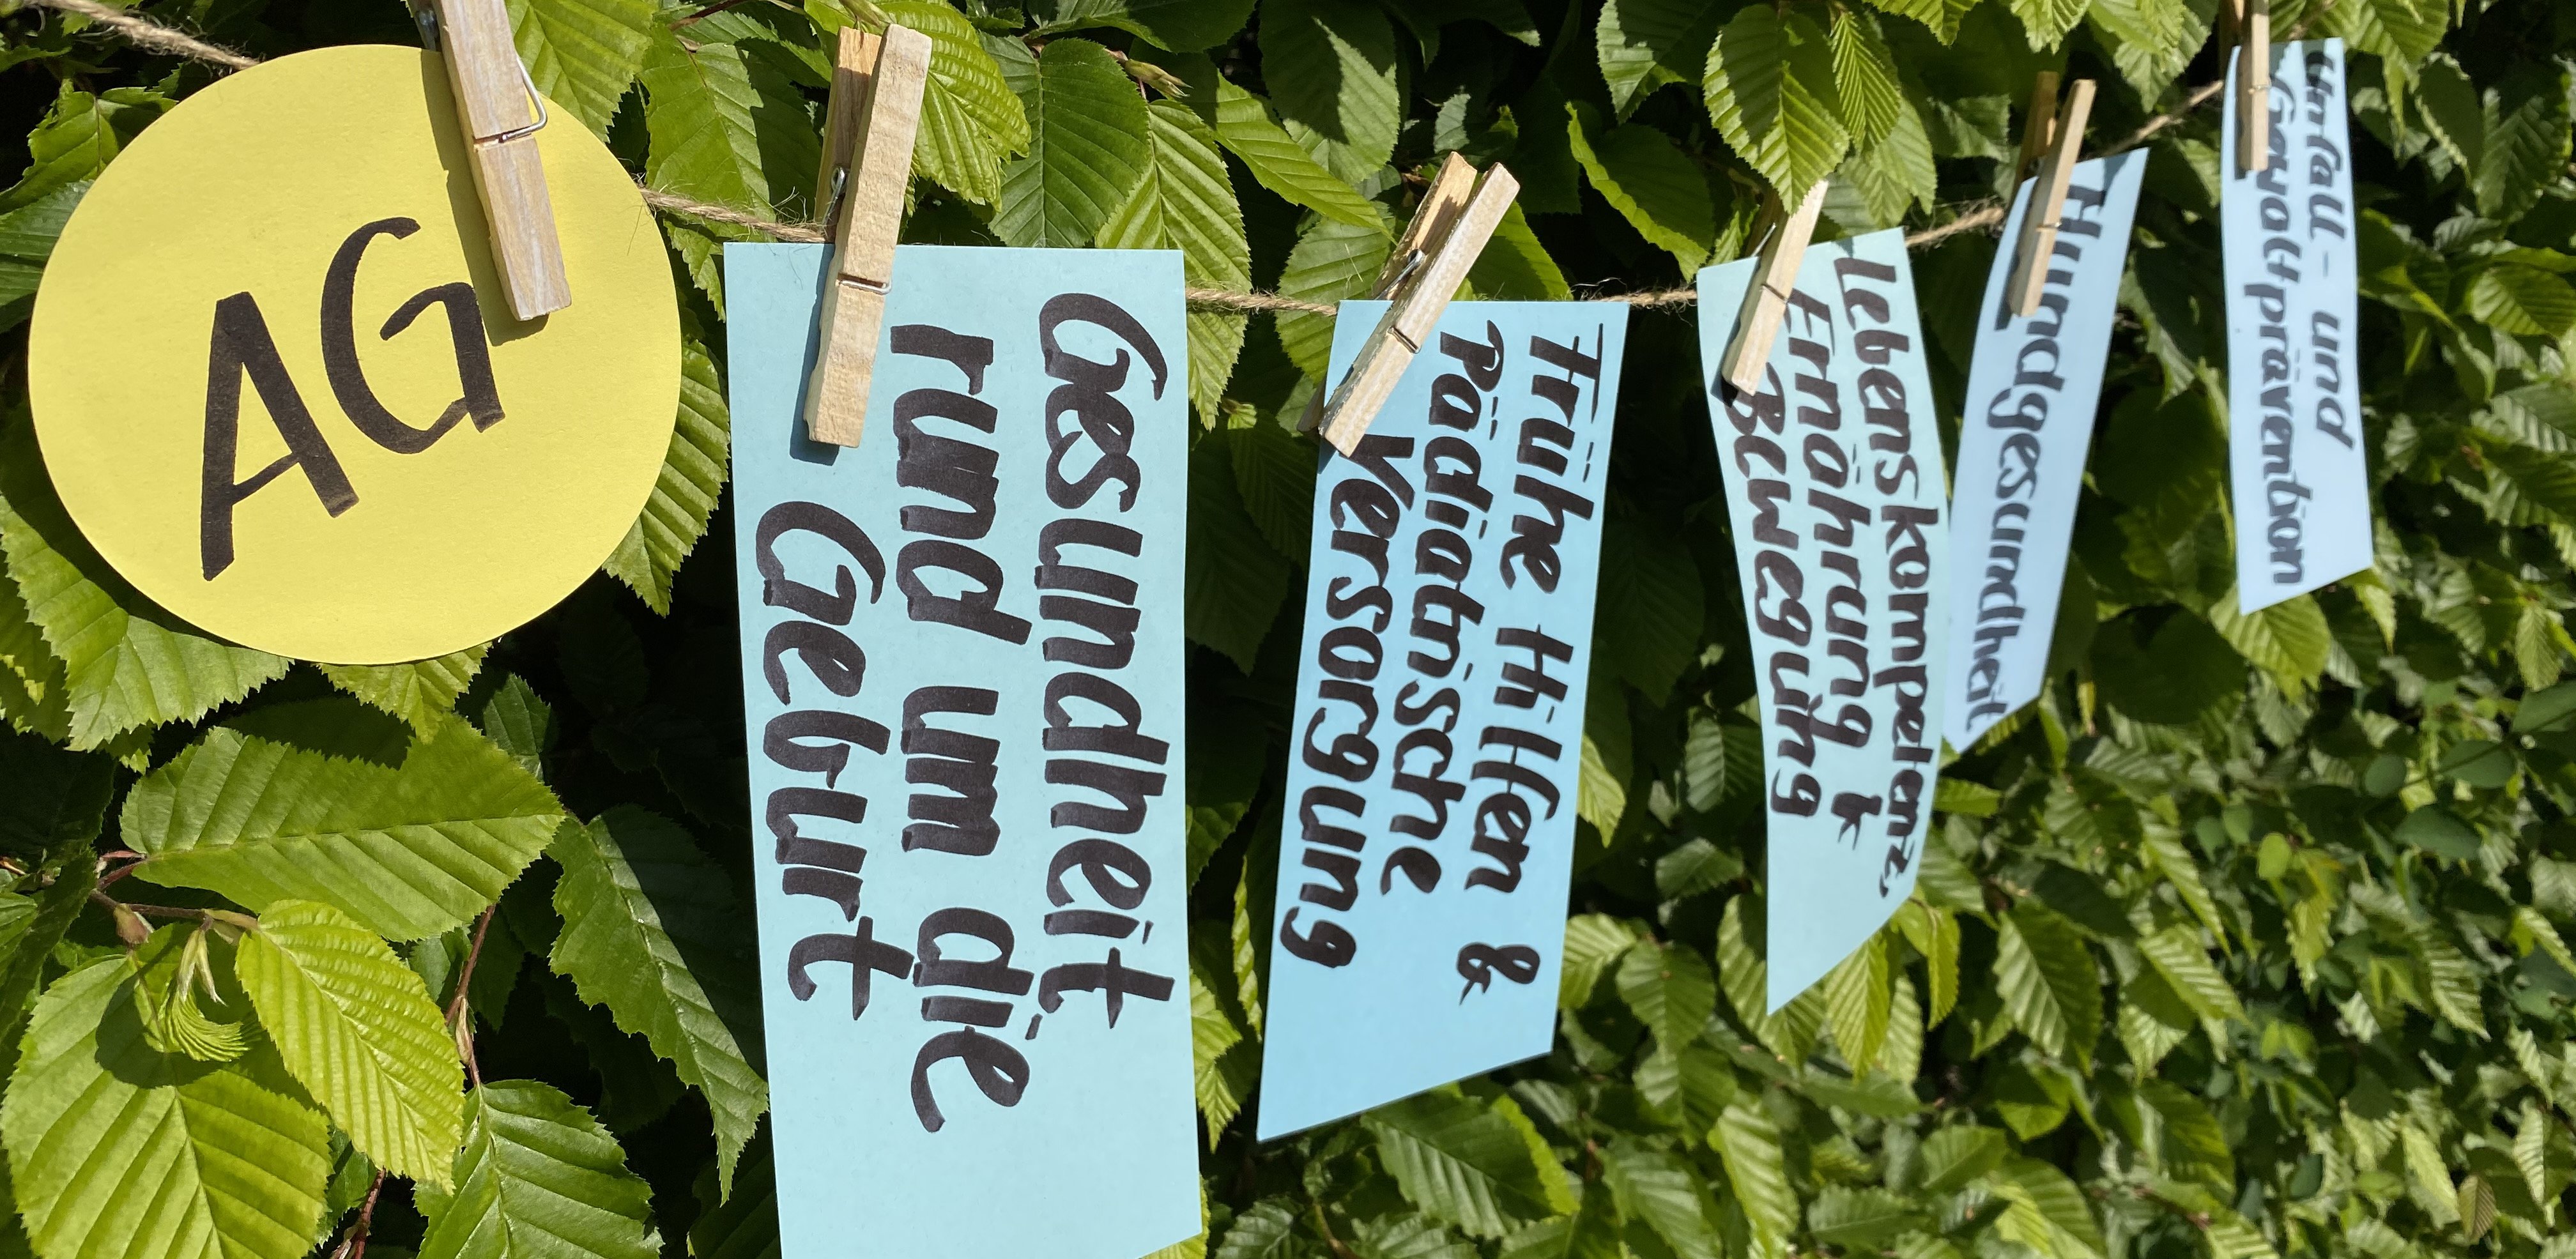 AG
Gesundheit
rund um die
Geburt
Frühe Hilfen &
Pädiatrische
Versorgung
Lebenskompetenz,
Ernährung &
Bewegung
Mundgesundheit
Unfall- und
Gewaltprävention